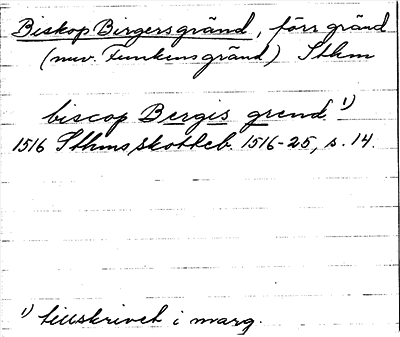 Biskop Birgers gränd, förr gränd
(nuv. Funkens gränd) Sthm
biscop Bergis grend 1)
1516 Sthms skotteb. 1516-25, s. 14.
1) tillskrivet i marg.